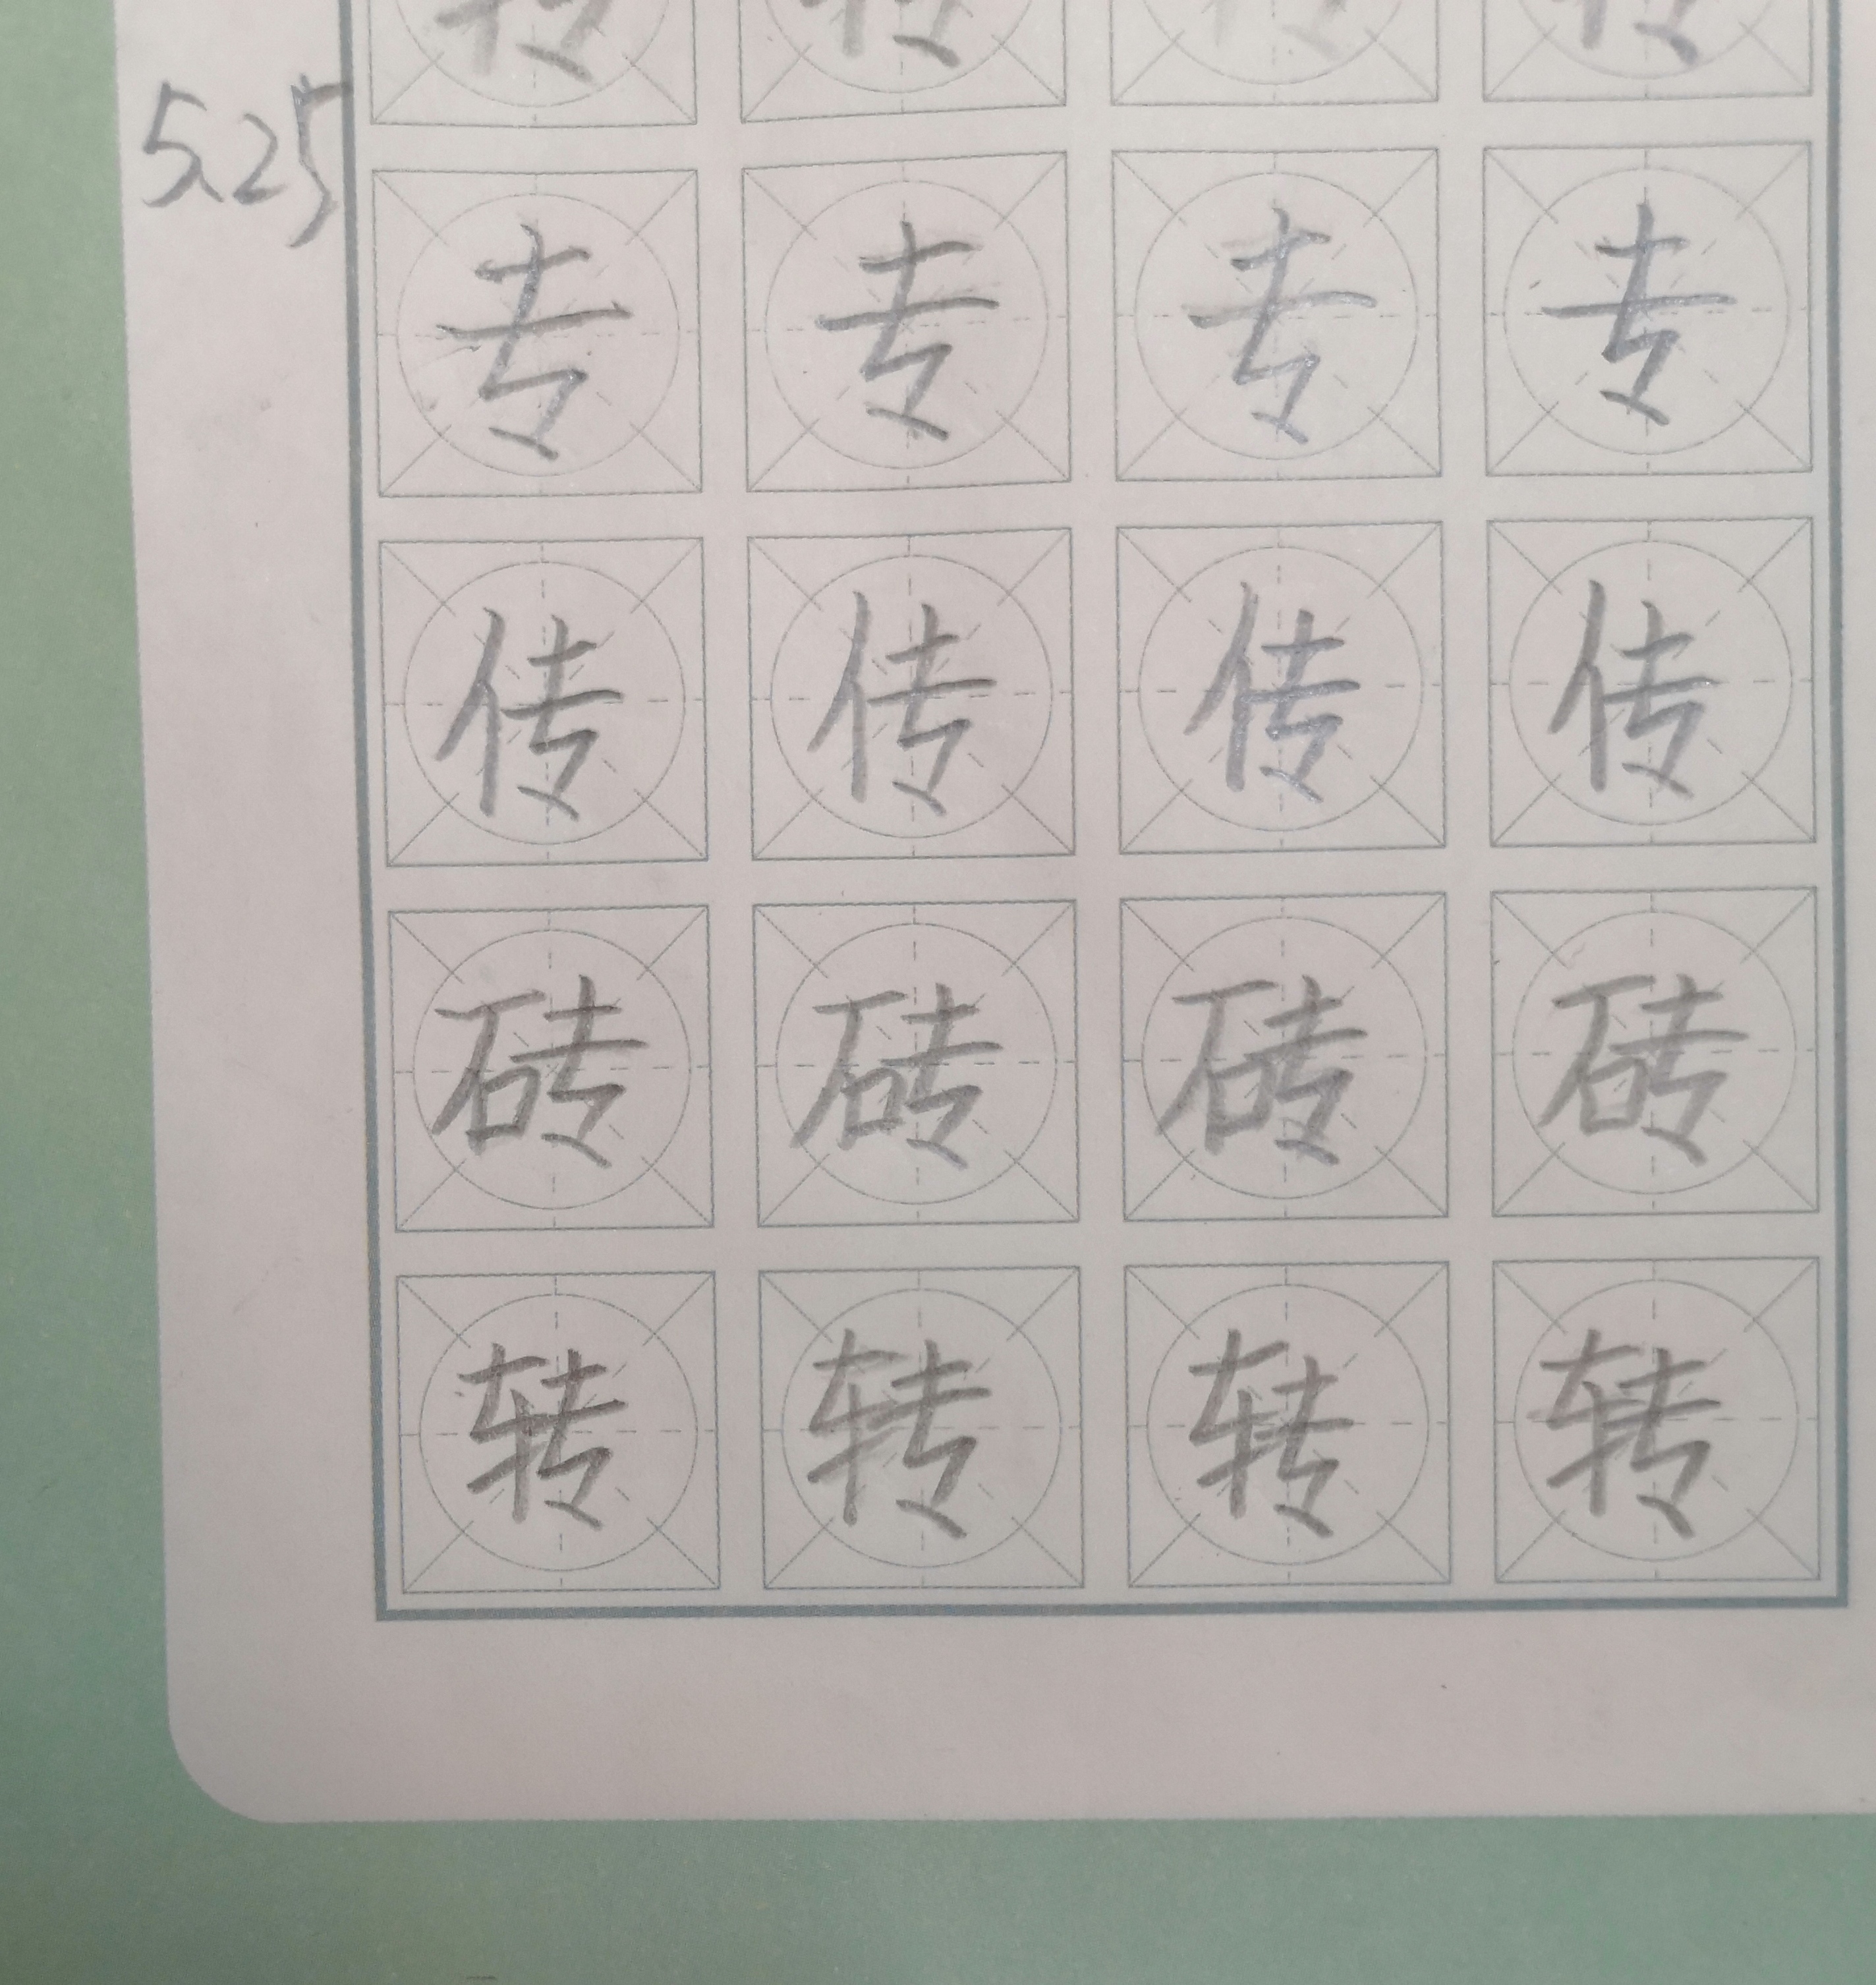 5.25
专 专 专 专
传 传 传 传
砖 砖 砖 砖
转 转 转 转